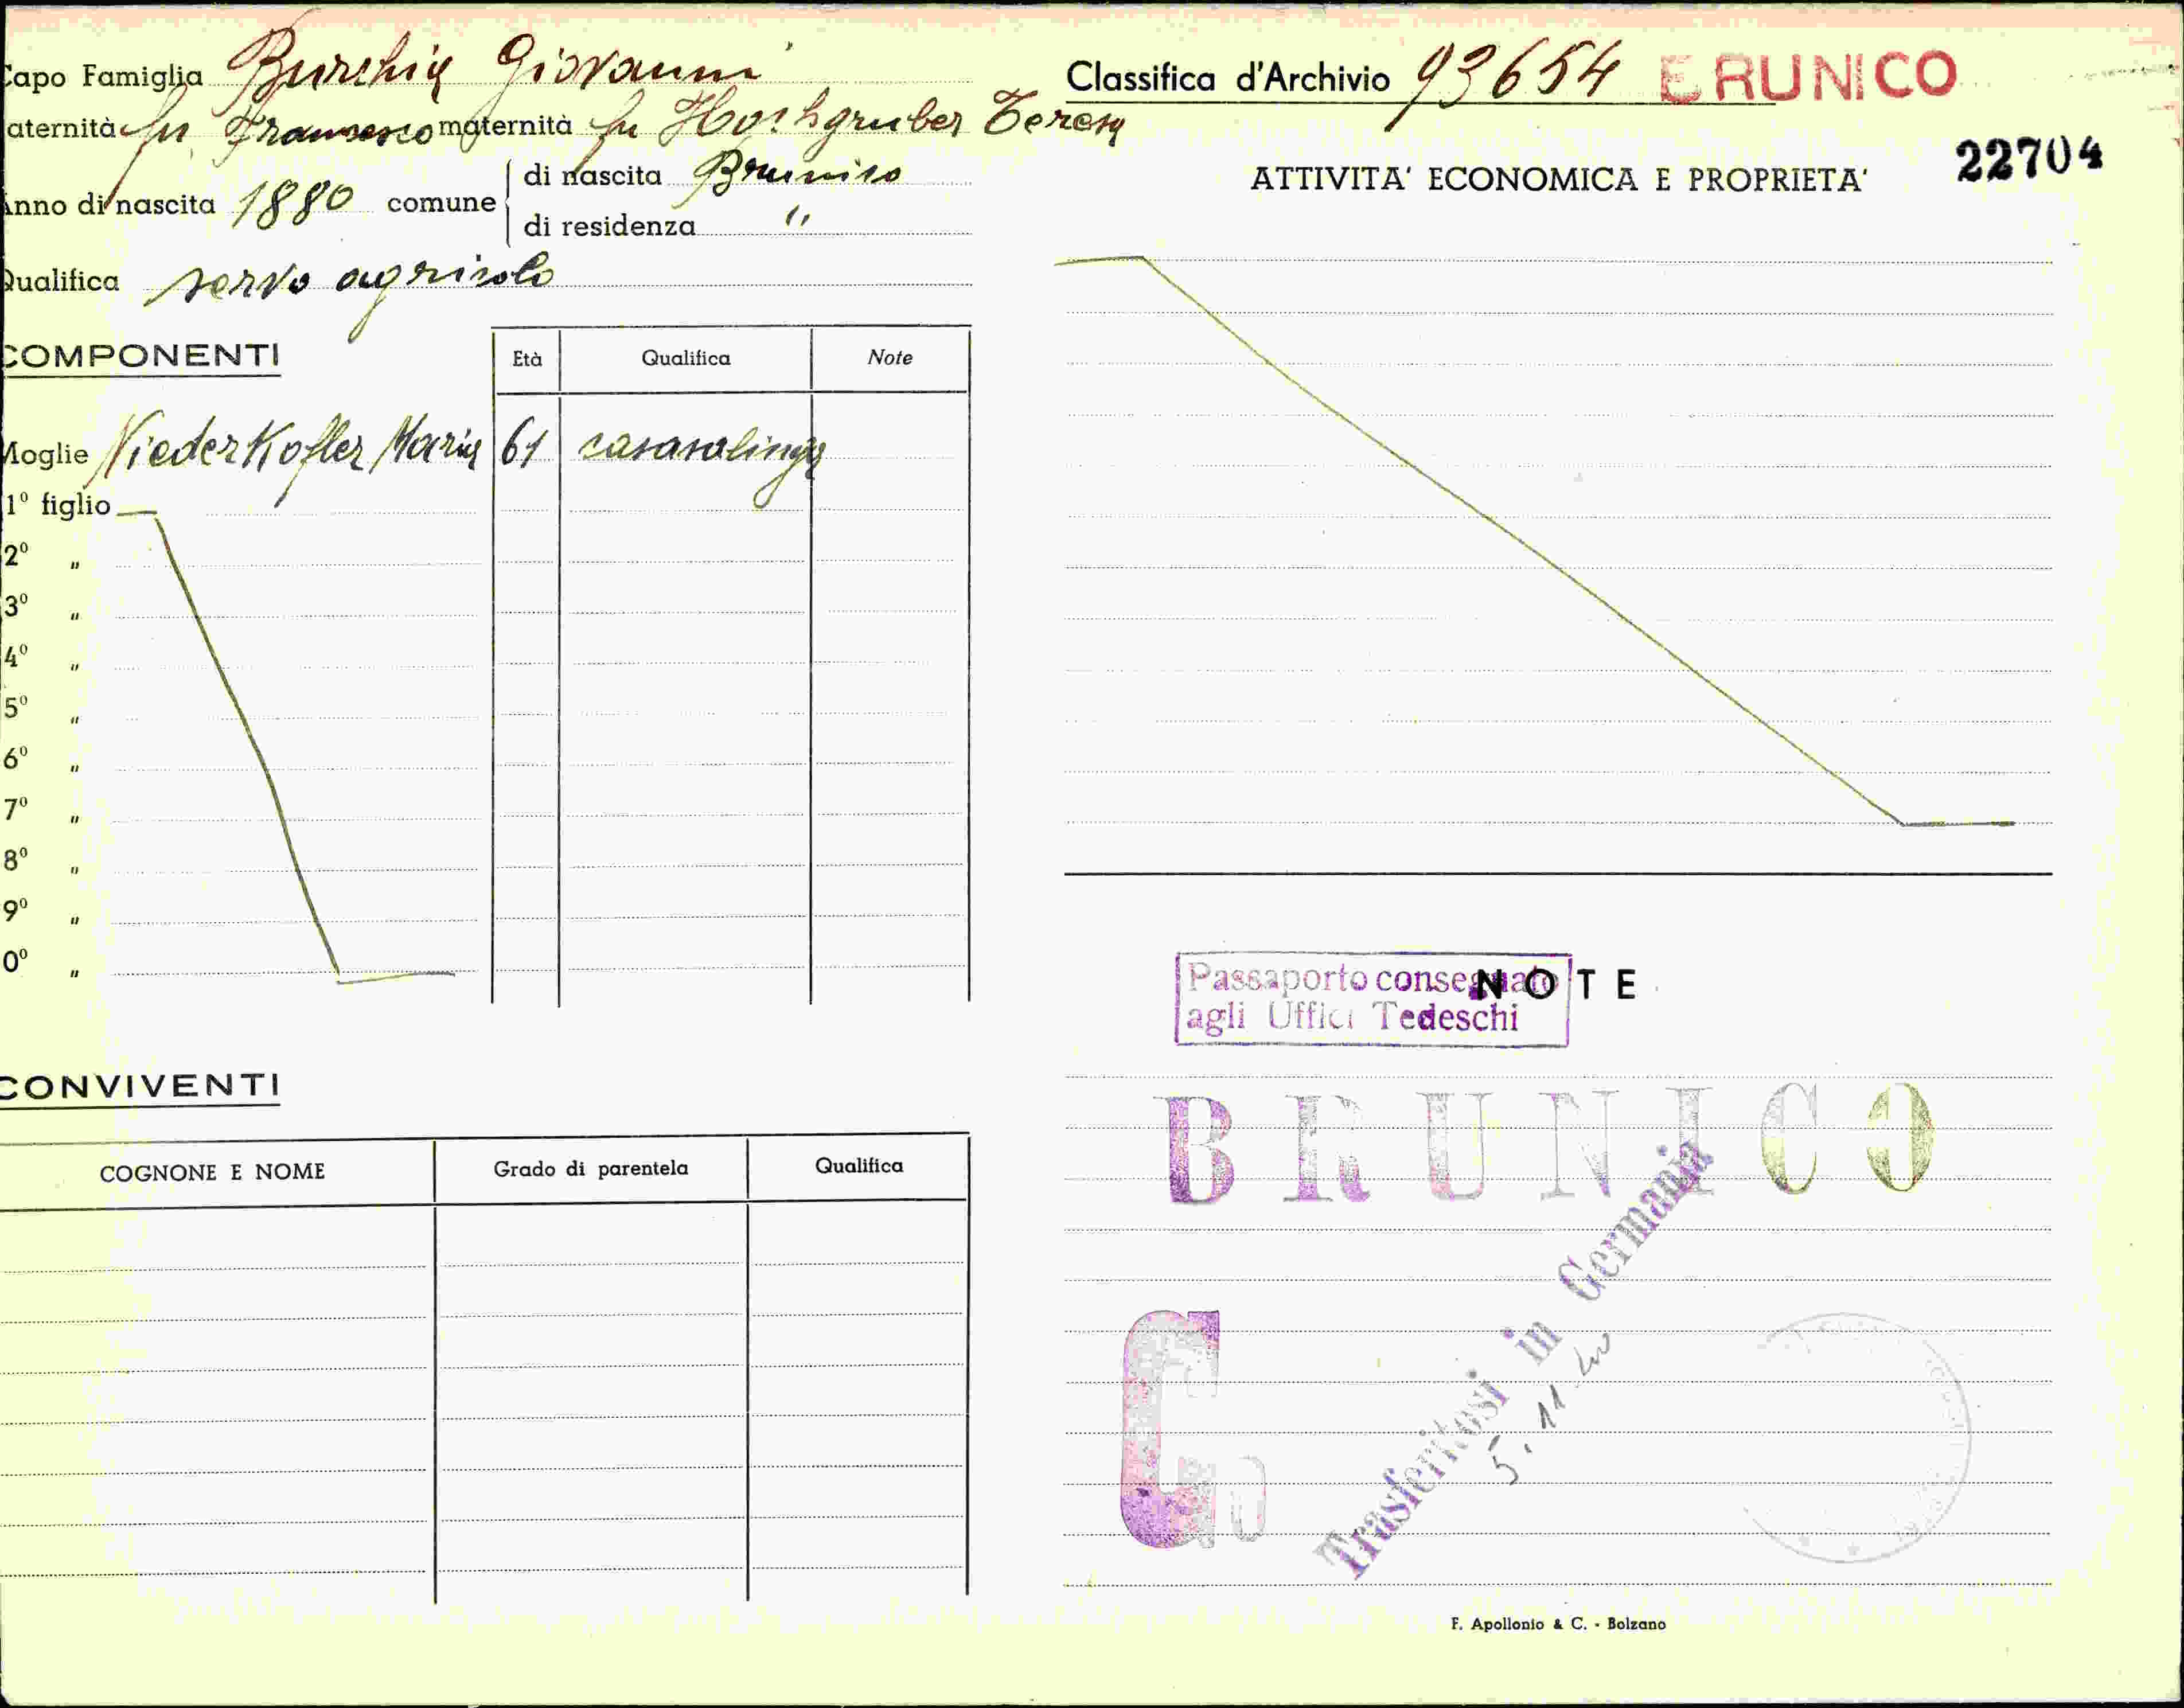 Capo Famiglia Burchia Giovanni
aternità fu Francesco maternità fu Hochgruber Teresa
Anno di nascita 1880 comune di nascita Brunico
di residenza "
Qualifica servo agricolo
COMPONENTI
Età Qualifica Note
Moglie Niederkofler Maria 61 casasalinga
1º figlio
2º "
3º "
4º "
5º "
6º "
7º "
8º "
9º "
0º "
CONVIVENTI
COGNONE E NOME Grado di parentela Qualifica
Classifica d'Archivio 93654 BRUNICO
22704
ATTIVITA' ECONOMICA E PROPRIETA'
NOTE
Passaporto consegnato
agli Uffici Tedeschi
BRUNICO
Trasferitosi in Germania
5.11.40
F. Apollonio & C. - Bolzano